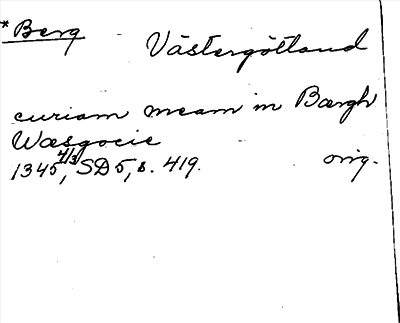 *Berg Västergötland
curiam meam in Bærgh
Wæsgocie
1345 4/3, SD 5, s. 419. orig.